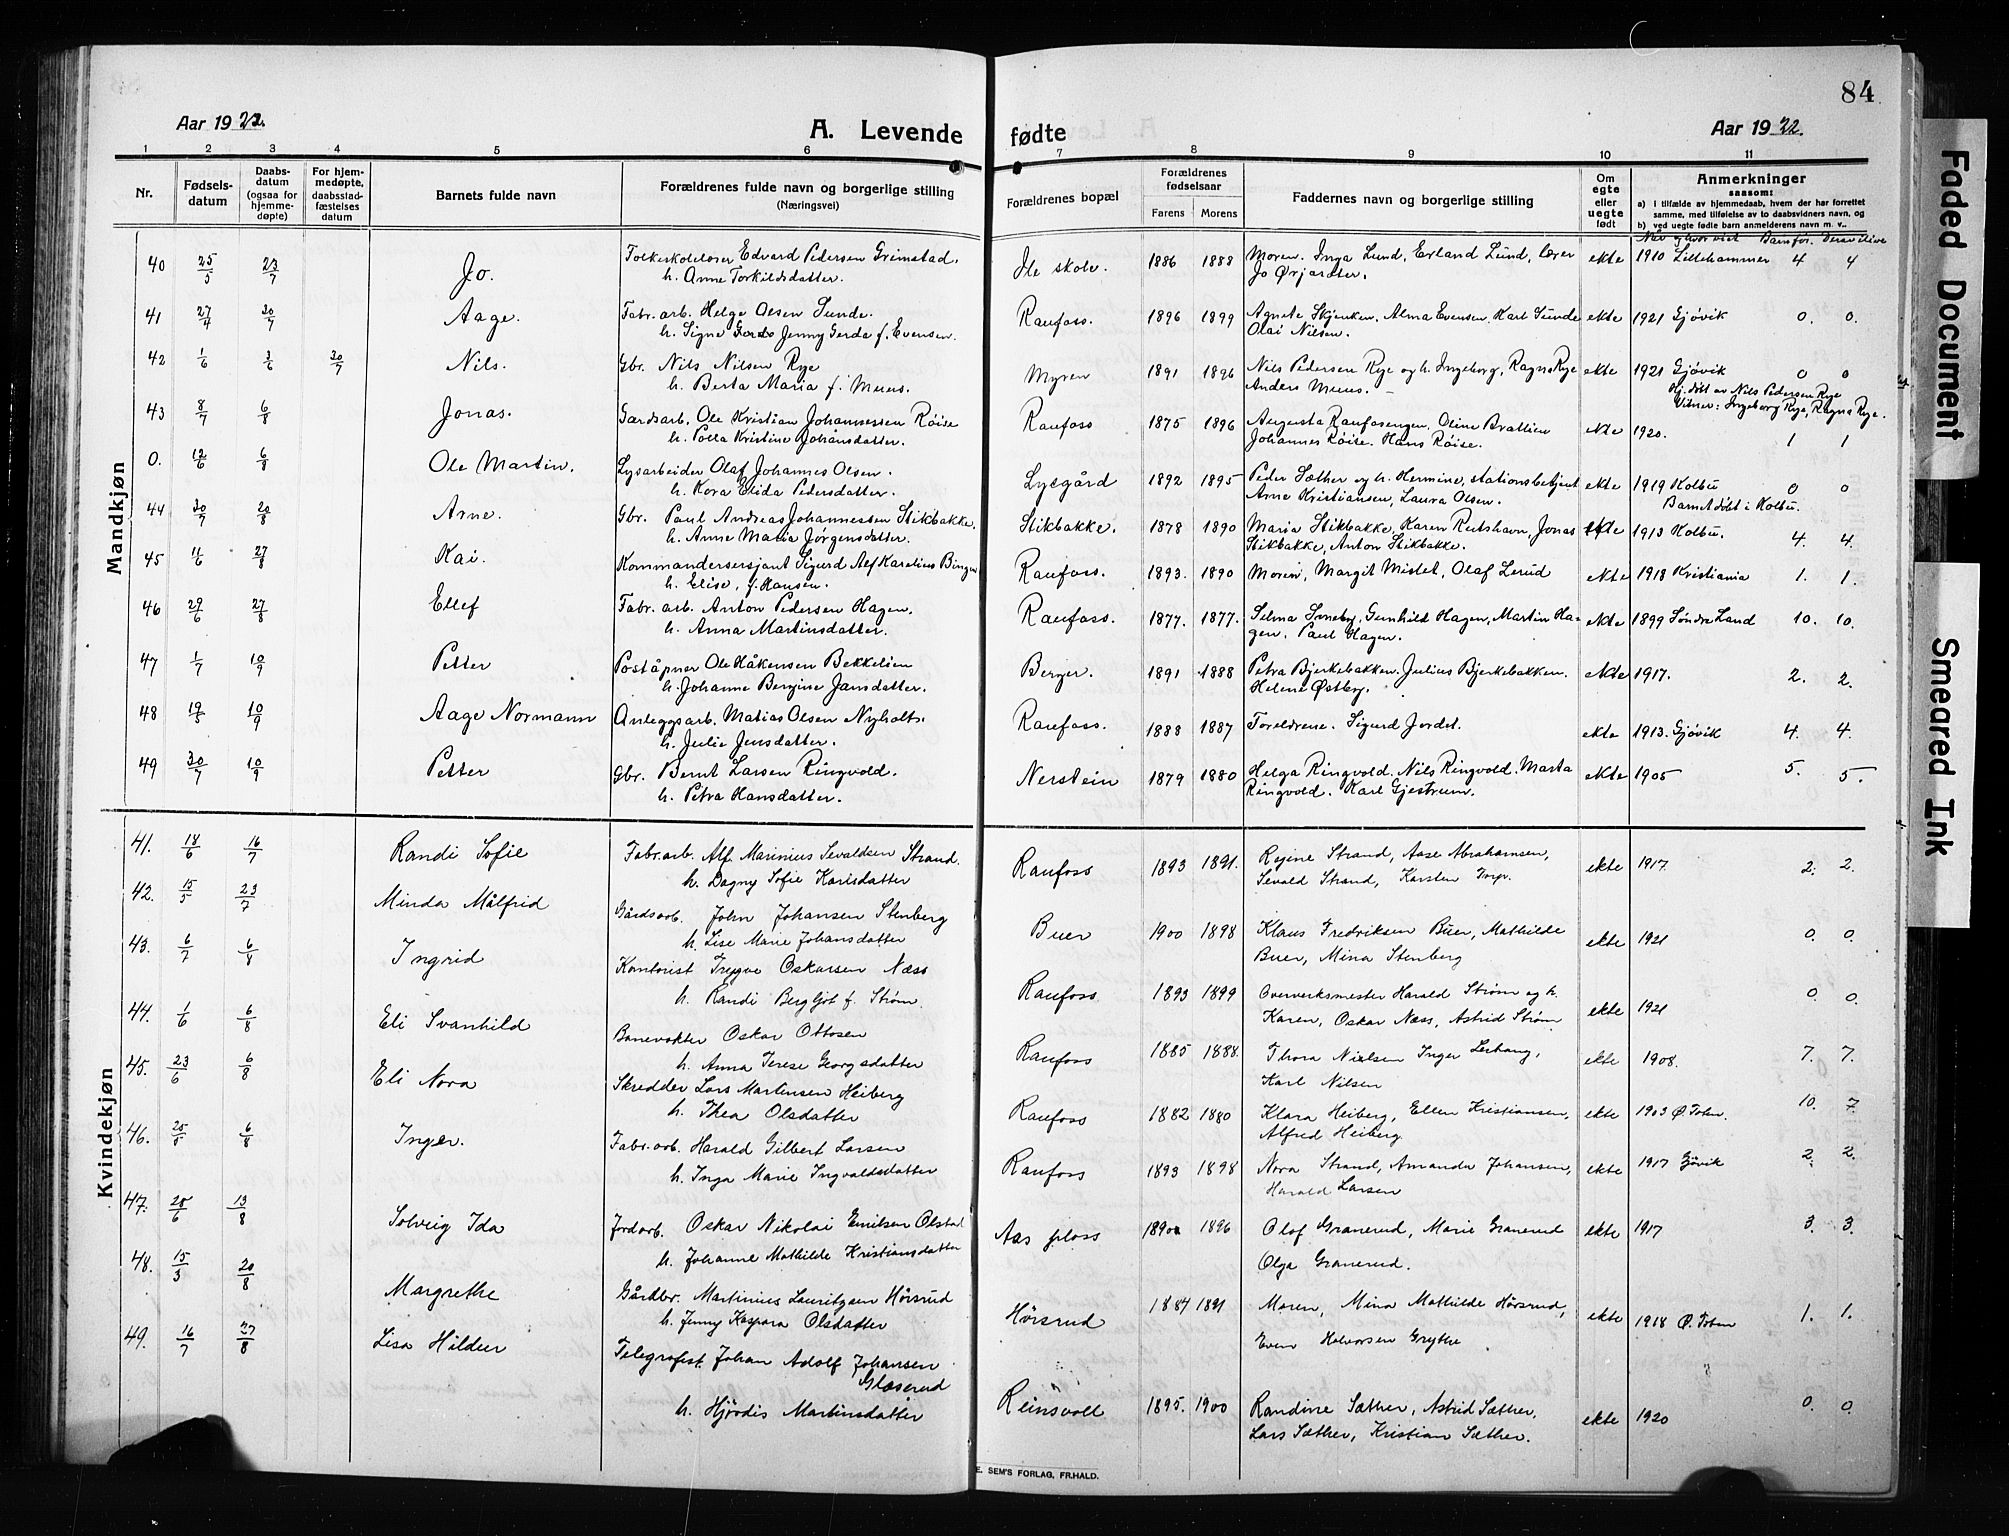 84
Aar 1922.
A. Levende fødte
Aar 1922.
1 2 3 4 5 6 7 8 9 10 11
Nr.
Fødsels-
datum
Daabs-
datum
(ogsaa for
hjemme-
døpte)
For hjem-
medøpte,
daabsstad-
fæstelses
datum
Barnets fulde navn
Forældrenes fulde navn og borgerlige stilling
(Næringsvei)
Forældrenes bopæl
Forældrenes
fødselsaar
Farens Morens
Faddernes navn og borgerlige stilling
Om
egte
eller
uegte
født
Anmerkninger
saasom:
a) i tilfælde av hjemmedaab, hvem der har forrettet
samme, med tilføielse av to daabsvidners navn, og
b) ved uegte fødte barn anmelderens navn m. v..
Når og hvor viet Barnfør. Derav i live
Mandkjøn
40 25/5 23/7 Jo. Folkeskolelærer Edvard Pedersen Grimstad. Ile skole. 1886 1888 Moren. Inga Lund, Erland Lund, lærer ekte 1910 Lillehammer 4 4
h. Anne Torkildsdatter. Jo Ørjardter.
41 27/4 30/7 Aage. Fabr. arb. Helge Olsen Sunde. Raufoss. 1896 1899 Agnete Skjenken, Alma Evensen. Karl Sunde ekte 1921 Gjøvik 0. 0.
h. Signe Jenny Gerda f. Evensen. Olai Nilsen.
42 1/6 3/6 30/7 Nils. Gbr. Nils Nilsen Rye Myren 1891 1896 Nils Pedersen Rye og h. Ingeborg, Ragna Rye ekte 1921 Gjøvik 0 0
h. Berta Maria f. Meus. Anders Meus. Hj. døbt av Nils Pedersen Rye
Vitner: Ingeborg Rye, Ragna Rye.
43 8/7 6/8 Jonas. Gardsarb. Ole Kristian Johannessen Røise Raufoss 1875 1896 Augusta Raufossengen. Oline Brattlien ekte 1920. 1 1
h. Polla Kristine Johansdatter. Johannes Røise. Hans Røise.
0. 12/6 6/8 Ole Martin. Lysarbeider Olaf Johannes Olsen. Lysgård 1892 1895 Peder Sæther og h. Hermine, stationsbetjent ekte 1919 Kolbu 0 0
h. Kora Elida Pedersdatter. Arne Kristiansen, Laura Olsen. Barnet døbt i Kolbu.
44 30/7 20/8 Arne. Gbr. Paul Andreas Johannessen Stikbakke. Stikbakke. 1878 1890 Maria Stikbakke, Karen Rutshavn, Jonas ekte 1913 Kolbu. 4. 4.
h. Anne Maria Jørgensdatter. Stikbakke, Anton Stikbakke.
45 11/6 27/8 Kai. Kommandersersjant Sigurd Alf Karelius Bingen Raufoss. 1893. 1890 Moren, Margit Mistet, Olaf Lerud ekte 1918 Kristiania 1. 1.
h. Elise, f. Hansen.
46 29/6 27/8 Ellef Fabr. arb. Anton Pedersen Hagen. Raufoss. 1877. 1877. Selma Sveby, Gunhild Hagen, Martin Ha- ekte 1899 Søndre Land 10. 10.
h. Anna Martinsdatter. gen. Paul Hagen.
47 1/7 10/9 Petter Poståpner Ole Håkensen Bekkelien Berger. 1891 1888 Petra Bjerkebakken. Julius Bjerkebakken. ekte 1917. 2. 2.
h. Johanne Bergine Jansdatter. Helene Østby.
48 19/5 10/9 Aage Normann Anleggsarb. Matias Olsen Nyholts. Raufoss. 1888 1887 Foreldrene. Sigurd Jordet. ekte 1913. Gjøvik 4. 4.
h. Julie Jensdatter.
49 30/7 10/9 Petter Gbr. Bernt Larsen Ringvold. Nerstein 1879 1880 Helga Ringvold. Nils Ringvold. Marta ekte 1905 5. 5.
h. Petra Hansdatter. Ringvold. Karl Gjestrum.
Kvindekjøn
41. 18/6 16/7 Randi Sofie Fabr.arb. Alf. Marinius Sevaldsen Strand. Raufoss 1893 1891. Regine Strand, Aase Abrahamsen, ekte 1917. 2. 2.
h. Dagny Sofie Karlsdatter Sevald Strand, Karsten
42. 15/5 23/7 Minda Målfrid Gårdsarb. John Johansen Stenberg Buer 1900 1898 Klaus Fredriksen Buer, Mathilde ekte 1921 0. 0.
h. Lise Marie Johansdatter Buer, Mina Stenberg
43. 6/7 6/8 Ingrid Kontorist Trygve Oskarsen Næss Raufoss 1893 1899 Oververksmester Harald Strøm og h. ekte 1921 0. 0.
h. Randi Bergljot f. Strøm. Karen, Oskar Næss, Astrid Strøm
44. 1/6 6/8 Eli Svanhild Banevokter Oskar Ottosen Raufoss 1885 1888. Thora Nielsen Inger Lerhaug, ekte 1908. 7. 7.
h. Anna Terese Georgsdatter Karl Nilsen
45. 23/6 6/8 Eli Nora Skredder Lars Martinsen Heiberg Raufoss 1882 1880 Klara Heiberg, Ellen Kristiansen, ekte 1903 Ø. Toten. 10. 7.
h. Thea Olsdatter Alfred Heiberg.
46. 25/5 6/8 Inger. Fabr.arb. Harald Gilbert Larsen Raufoss 1893 1898 Nora Strand, Amanda Johansen, ekte 1917 Gjøvik 2. 2.
h. Inga Marie Ingvaldsdatter Harald Larsen
47. 28/6 13/8 Solveig Ida Jordarb. Oskar Nikolai Emilsen Olstad Aas plass 1890 1896 Olaf Granerud, Marie Granerud ekte 1917 3. 3.
h. Johanne Mathilde Kristiansdatter Olga Granerud.
48. 15/3 20/8 Margrethe Gårdbr. Martinius Lauritzen Hørsrud Hørsrud 1887 1891 Moren, Mina Mathilde Hørsrud, ekte 1918 Ø. Toten 1. 1.
h. Jenny Kaspara Olsdatter Even Halvorsen Grythe
49. 16/7 27/8 Lisa Hildur Telegrafist Johan Adolf Johansen Reinsvoll 1895. 1900 Randine Sæther, Astrid Sæther, ekte 1920 0. 0.
Glæserud
h. Hjørdis Martinsdatter Lars Sæther, Kristian Sæther.
E. SEM'S FORLAG, FR.HALD.
Faded Document
Smeared Ink